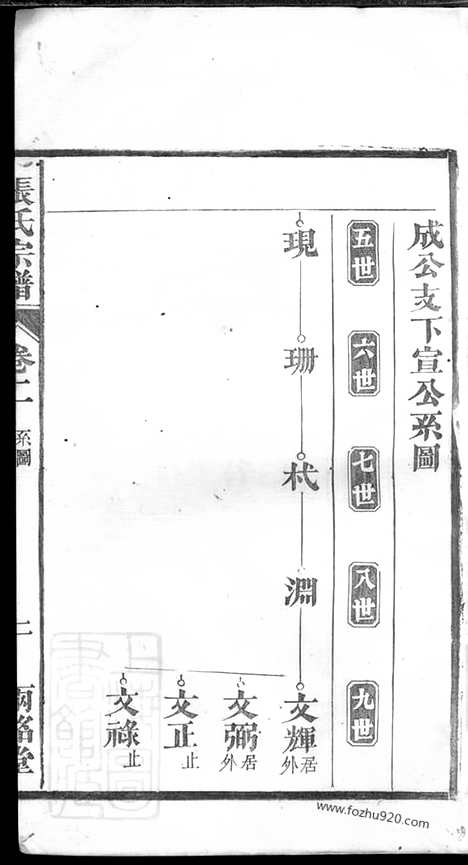 成公支下宣公系圖
五世
六世
七世
八世
九世
現
珊
杙
淵
文輝 居外
文弼 居外
文正 止
文祿 止
張氏宗譜
卷二
系圖
二
兩銘堂
www.fozhu920.com